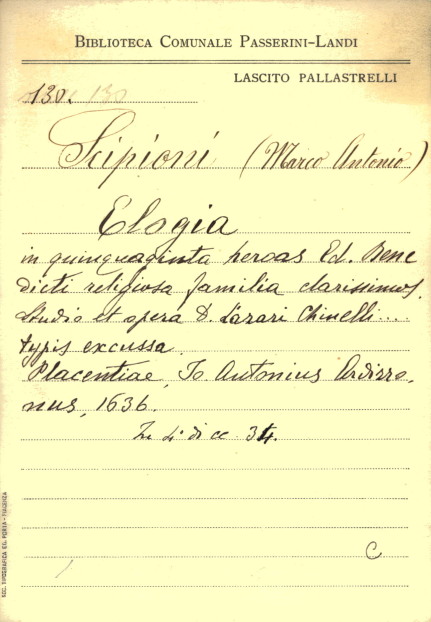 BIBLIOTECA COMUNALE PASSERINI-LANDI
LASCITO PALLASTRELLI
130. 130
Scipioni (Marco Antonio)
Elogia
in quinquaginta heroas Ed. Bene
dicti religiosa familia clarissimos.
Studio et opera D. Lazari Chinelli...
typis excussa.
Placentiae, Io. Antonius Ardizzo.
nus, 1636.
In 4° di cc 34.
C
SOC. TIPOGRAFIA ED. PORTA - PIACENZA